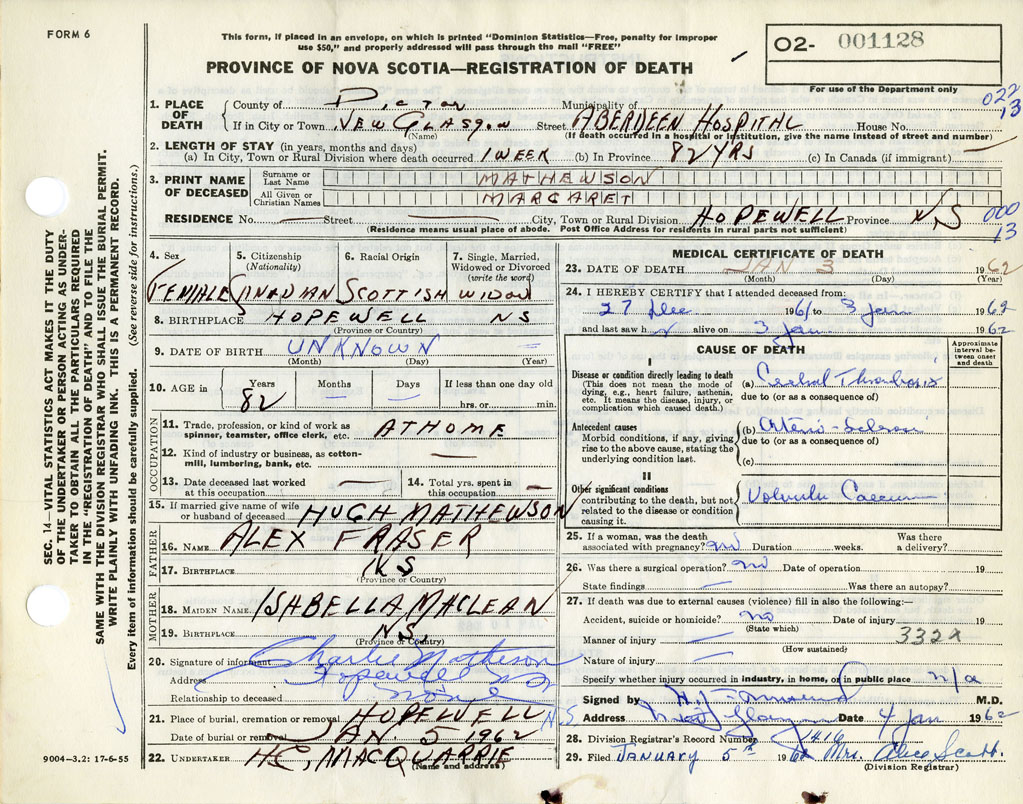 FORM 6
This form, if placed in an envelope, on which is printed "Dominion Statistics—Free, penalty for improper
use $50," and properly addressed will pass through the mail "FREE"
PROVINCE OF NOVA SCOTIA—REGISTRATION OF DEATH
O2- 001128
For use of the Department only
022
13
1. PLACE OF DEATH
County of PICTOU Municipality of
If in City or Town NEW GLASGOW Street ABERDEEN HOSPITAL House No.
(Name) (If death occurred in a hospital or institution, give the name instead of street and number)
2. LENGTH OF STAY (in years, months and days)
(a) In City, Town or Rural Division where death occurred 1 WEEK (b) In Province 82 YRS (c) In Canada (if immigrant) —
3. PRINT NAME OF DECEASED
Surname or Last Name MATHEWSON
All Given or Christian Names MARGARET
RESIDENCE No. — Street — City, Town or Rural Division HOPEWELL Province NS
000
13
(Residence means usual place of abode. Post Office Address for residents in rural parts not sufficient)
4. Sex
FEMALE
5. Citizenship (Nationality)
CANADIAN
6. Racial Origin
SCOTTISH
7. Single, Married, Widowed or Divorced (write the word)
WIDOW
8. BIRTHPLACE HOPEWELL NS
(Province or Country)
9. DATE OF BIRTH UNKNOWN
(Month) (Day) (Year)
10. AGE in
Years Months Days If less than one day old
82 — — hrs. or min.
OCCUPATION
11. Trade, profession, or kind of work as spinner, teamster, office clerk, etc. AT HOME
12. Kind of industry or business, as cotton-mill, lumbering, bank, etc. —
13. Date deceased last worked at this occupation —
14. Total yrs. spent in this occupation —
15. If married give name of wife or husband of deceased HUGH MATHEWSON
FATHER
16. NAME ALEX FRASER
17. BIRTHPLACE NS
(Province or Country)
MOTHER
18. MAIDEN NAME ISABELLA MACLEAN
19. BIRTHPLACE NS.
(Province or Country)
20. Signature of informant Charlie Matheson
Address Hopewell NS
Relationship to deceased
21. Place of burial, cremation or removal HOPEWELL N.S
Date of burial or removal JAN. 5 1962
22. UNDERTAKER H.C. MACQUARRIE
(Name and address)
MEDICAL CERTIFICATE OF DEATH
23. DATE OF DEATH JAN 3 1962
(Month) (Day) (Year)
24. I HEREBY CERTIFY that I attended deceased from:
27 Dec 1961 to 3 Jan 1962
and last saw h alive on 3 Jan 1962
CAUSE OF DEATH
Approximate interval between onset and death
I
Disease or condition directly leading to death
(This does not mean the mode of dying, e.g., heart failure, asthenia, etc. It means the disease, injury, or complication which caused death.)
(a) Cerebral Thrombosis
due to (or as a consequence of)
Antecedent causes
Morbid conditions, if any, giving rise to the above cause, stating the underlying condition last.
(b) Arterio-sclerosis
due to (or as a consequence of)
(c)
II
Other significant conditions
contributing to the death, but not related to the disease or condition causing it.
Volvulus Caecum
25. If a woman, was the death associated with pregnancy? no Duration weeks. Was there a delivery?
26. Was there a surgical operation? no Date of operation 19
State findings — Was there an autopsy?
27. If death was due to external causes (violence) fill in also the following:—
Accident, suicide or homicide? no Date of injury 19
(State which)
Manner of injury — 332X
(How sustained)
Nature of injury —
Specify whether injury occurred in industry, in home, or in public place n/a
Signed by M.D.
Address New Glasgow Date 4 Jan 1962
28. Division Registrar's Record Number 1416
29. Filed JANUARY 5th 1962 Mrs. Alice Scott.
(Division Registrar)
SEC. 14—VITAL STATISTICS ACT MAKES IT THE DUTY
OF THE UNDERTAKER OR PERSON ACTING AS UNDER-
TAKER TO OBTAIN ALL THE PARTICULARS REQUIRED
IN THE "REGISTRATION OF DEATH" AND TO FILE THE
SAME WITH THE DIVISION REGISTRAR WHO SHALL ISSUE THE BURIAL PERMIT.
WRITE PLAINLY WITH UNFADING INK. THIS IS A PERMANENT RECORD.
Every item of information should be carefully supplied. (See reverse side for instructions.)
9004-3.2: 17-6-55